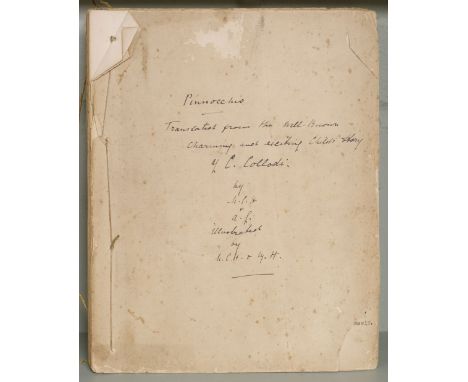 Pinnocchio
Translated from the Well-Known
Charming and exciting Child's Story
of C. Collodi.
by
&
illustrated
by